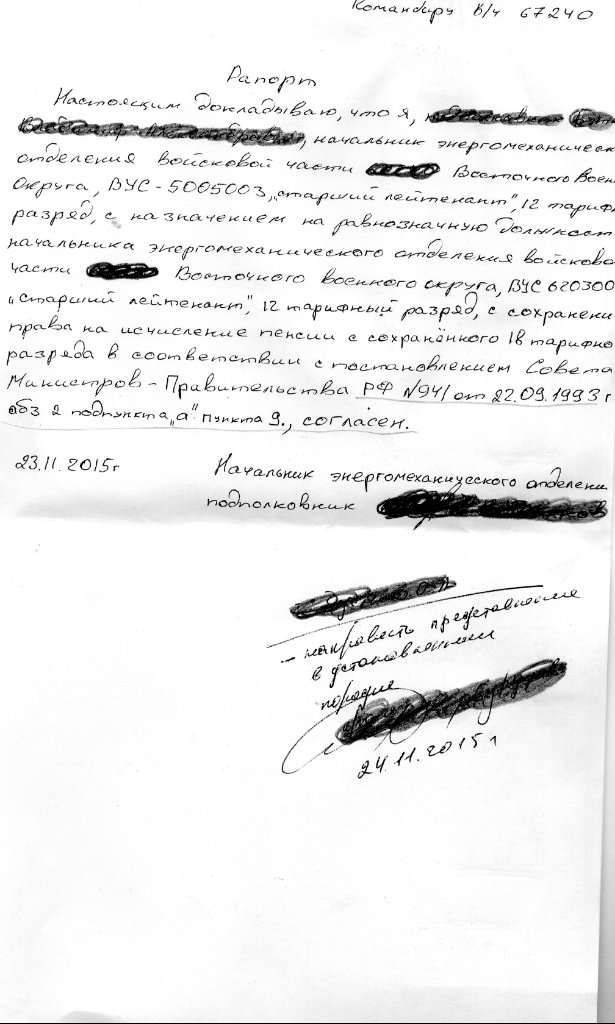 Командиру в/ч 67240
Рапорт
Настоящим докладываю, что я,
, начальник энергомеханическ
отделения войсковой части Восточного Воен
Округа, ВУС-5005003, „старший лейтенант", 12 тариф
разряд, с назначением на равнозначную должност
начальника энергомеханического отделения войсково
части Восточного военного округа, ВУС 620300
„старший лейтенант", 12 тарифный разряд, с сохранени
права на исчисление пенсии с сохранённого 18 тарифно
разряда в соответствии с постановлением Совета
Министров - Правительства РФ №941 от 22.09.1993 г
абз 2 подпункта „а" пункта 9., согласен.
23.11.2015г Начальник энергомеханического отделени
подполковник
- направить представление
в установленном
порядке
24.11.2015 г